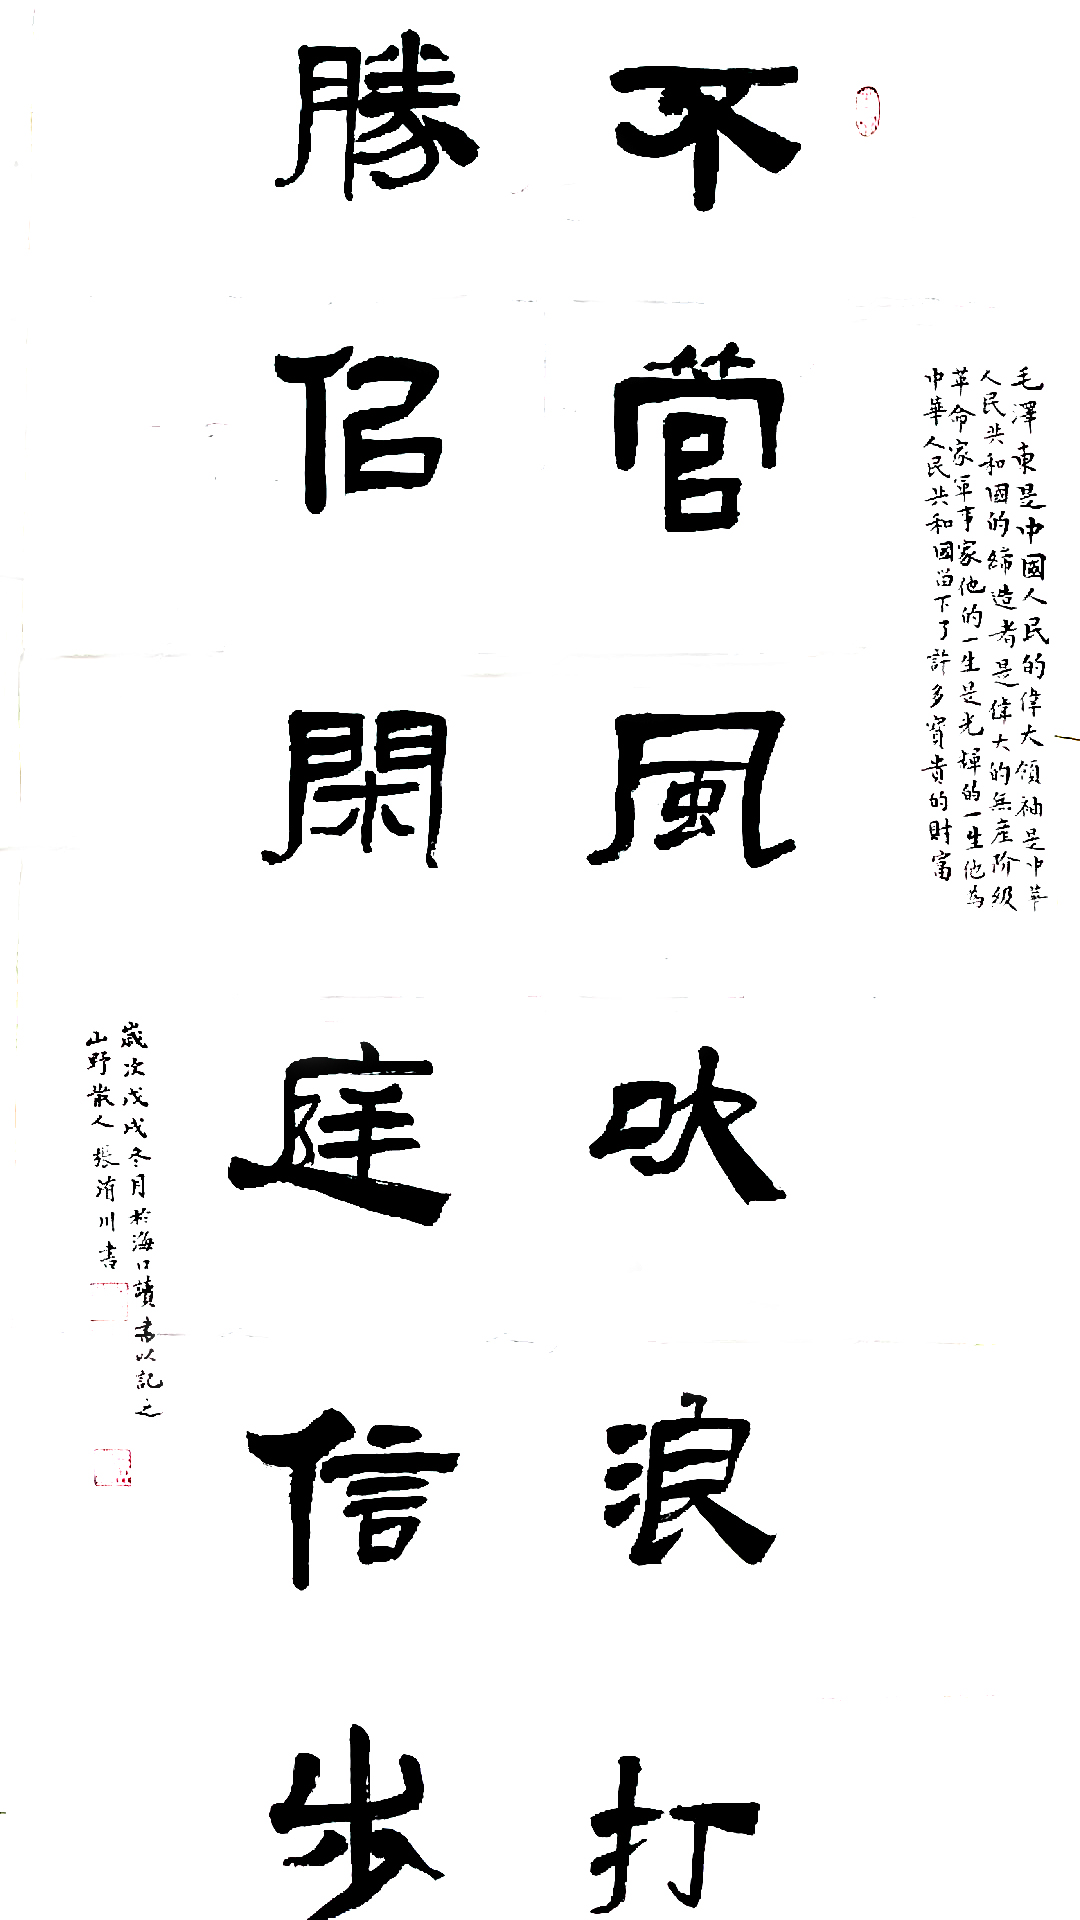 毛澤東是中國人民的偉大領袖是中華
人民共和国的締造者是偉大的無產阶级
革命家軍事家他的一生是光輝的一生他為
中華人民共和國留下了許多寶貴的財富
不管風吹浪打
勝佀閑庭信步
歲次戊戌冬月於海口讀書以記之
山野散人張川書